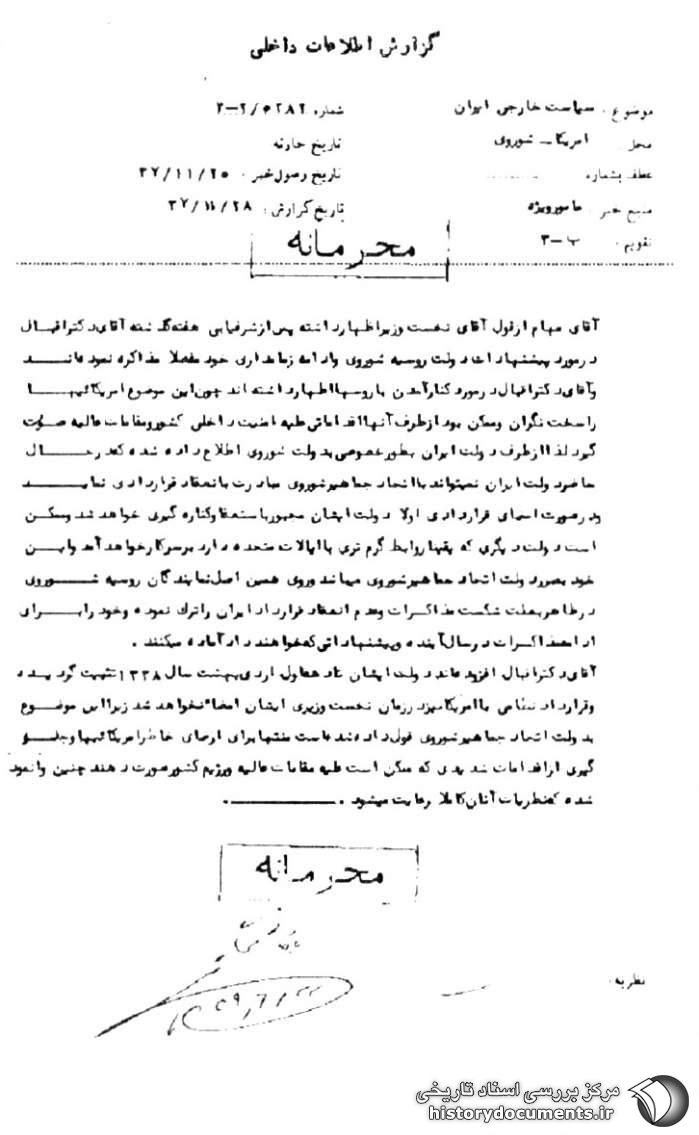 گزارش اطلاعات داخلی
موضوع: سیاست خارجی ایران
شماره ۲-۲/۶۲۸۲
محل: امریکا ـ شوروی
تاریخ حادثه
عطف بشماره
تاریخ وصول خبر: ۳۷/۱۱/۲۵
منبع خبر: مامور ویژه
تاریخ گزارش: ۳۷/۱۱/۲۸
تقویم: ب-۳
محرمانه
آقای میهام از قول آقای نخست وزیر اظهار داشته پس از شرفیابی هفته گذشته آقای دکتر اقبال
در مورد پیشنهادات دولت روسیه شوروی و ادامه زمامداری خود مفصلا مذاکره نموده‌اند
و آقای دکتر اقبال در مورد کنار آمدن با روسها اظهار داشته اند چون این موضوع امریکائیها
را سخت نگران و ممکن بود از طرف آنها اقداماتی علیه امنیت داخلی کشور و مقامات عالیه صورت
گیرد لذا از طرف دولت ایران بطور خصوصی بدولت شوروی اطلاع داده شده که در حال
حاضر دولت ایران نمیتواند با اتحاد جماهیر شوروی مبادرت بانعقاد قراردادی نماید
و در صورت امضای قراردادی اولا دولت ایشان مجبور باستعفا و کناره گیری خواهد شد و ممکن
است دولت دیگری که یقینا روابط گرم تری با ایالات متحده دارد بر سر کار خواهد آمد و این
خود بضرر دولت اتحاد جماهیر شوروی میباشد و روی همین اصل نمایندگان روسیه شوروی
در ظاهر بعلت شکست مذاکرات و عدم انعقاد قرارداد ایران را ترك نموده و خود را برای
ادامه مذاکرات در سال آینده و پیشنهاداتی که خواهند داد آماده میکنند.
آقای دکتر اقبال افزوده‌اند دولت ایشان تا دهه اول اردیبهشت سال ۱۳۳۸ تثبیت گردیده
و قرارداد نظامی با امریکا نیز در زمان نخست وزیری ایشان امضاء نخواهد شد زیرا این موضوع
بدولت اتحاد جماهیر شوروی قول داده شده است منتها برای ارضای خاطر امریکائیها و جلو
گیری از اقدامات شدیدی که ممکن است علیه مقامات عالیه و رژیم کشور صورت دهند چنین وانمود
شده که نظریات آنان کاملا رعایت میشود.
محرمانه
نظریه:
مرکز بررسی اسناد تاریخی
historydocuments.ir